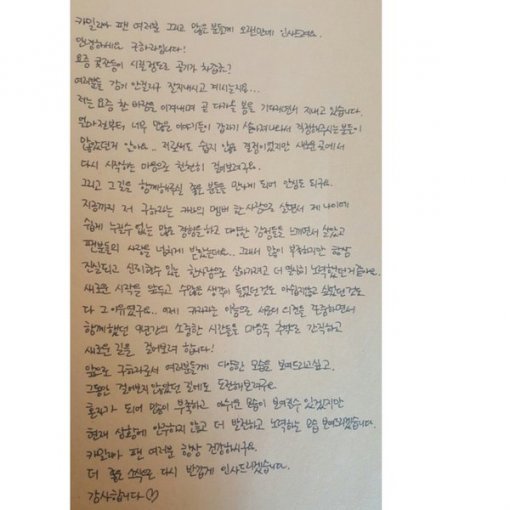 카밀리아 팬 여러분 그리고 많은 분들께 오랜만에 인사드려요.
안녕하세요 구하라입니다!
요즘 콧끝이 시릴정도로 공기가 차갑죠?
여러분들 감기 안걸리구 잘지내시고 계시는지요...
저는 요즘 찬 바람을 이겨내며 곧 다가올 봄을 기다리면서 지내고 있습니다.
얼마전부터, 너무 많은 이야기들이 갑자기 쏟아져나와서 걱정해주시는분들이
많았던거 알아요.. 저로써도 쉽지 않은 결정이었지만 새로운 곳에서
다시 시작하는 마음으로 천천히 걸어보려구요.
그리고 그길을 함께해주실 좋은 분들을 만나게 되어 안심도 되구요.
지금까지 저 구하라는 카라의 멤버 한사람으로 살면서 제 나이에
쉽게 누릴수 없는 많은 경험을 하고 다양한 감정들을 느끼면서 살았고
팬분들의 사랑을 넘치게 받았는데요.. 그래서 많이 부족하지만 항상
진실되고 신뢰할수 있는 한사람으로 살아가려고 더 열심히 노력했던거같아요.
새로운 시작을 앞두고 수많은 생각이 들었던것도 아쉬움많고 슬펐던것도
다 그 이유였구요.. 이제 카라라는 이름으로 서로의 의견을 존중하면서
함께했던 9년간의 소중한 시간들을 마음속 추억으로 간직하고
새로운 길을 걸어보려 합니다!
앞으로 구하라로서 여러분들께 다양한 모습을 보여드리고싶고,
그동안 걸어보지 않았던 길에도 도전해보려구요.
혼자가 되어 많이 부족하고 아쉬운 모습이 보여질수 있겠지만
현재 상황에 안주하지 않고 더 발전하고 노력하는 모습 보여드리겠습니다.
카밀리아 팬 여러분 항상 건강하시구요.
더 좋은 소식으로 다시 반갑게 인사드리겠습니다.
감사합니다♡